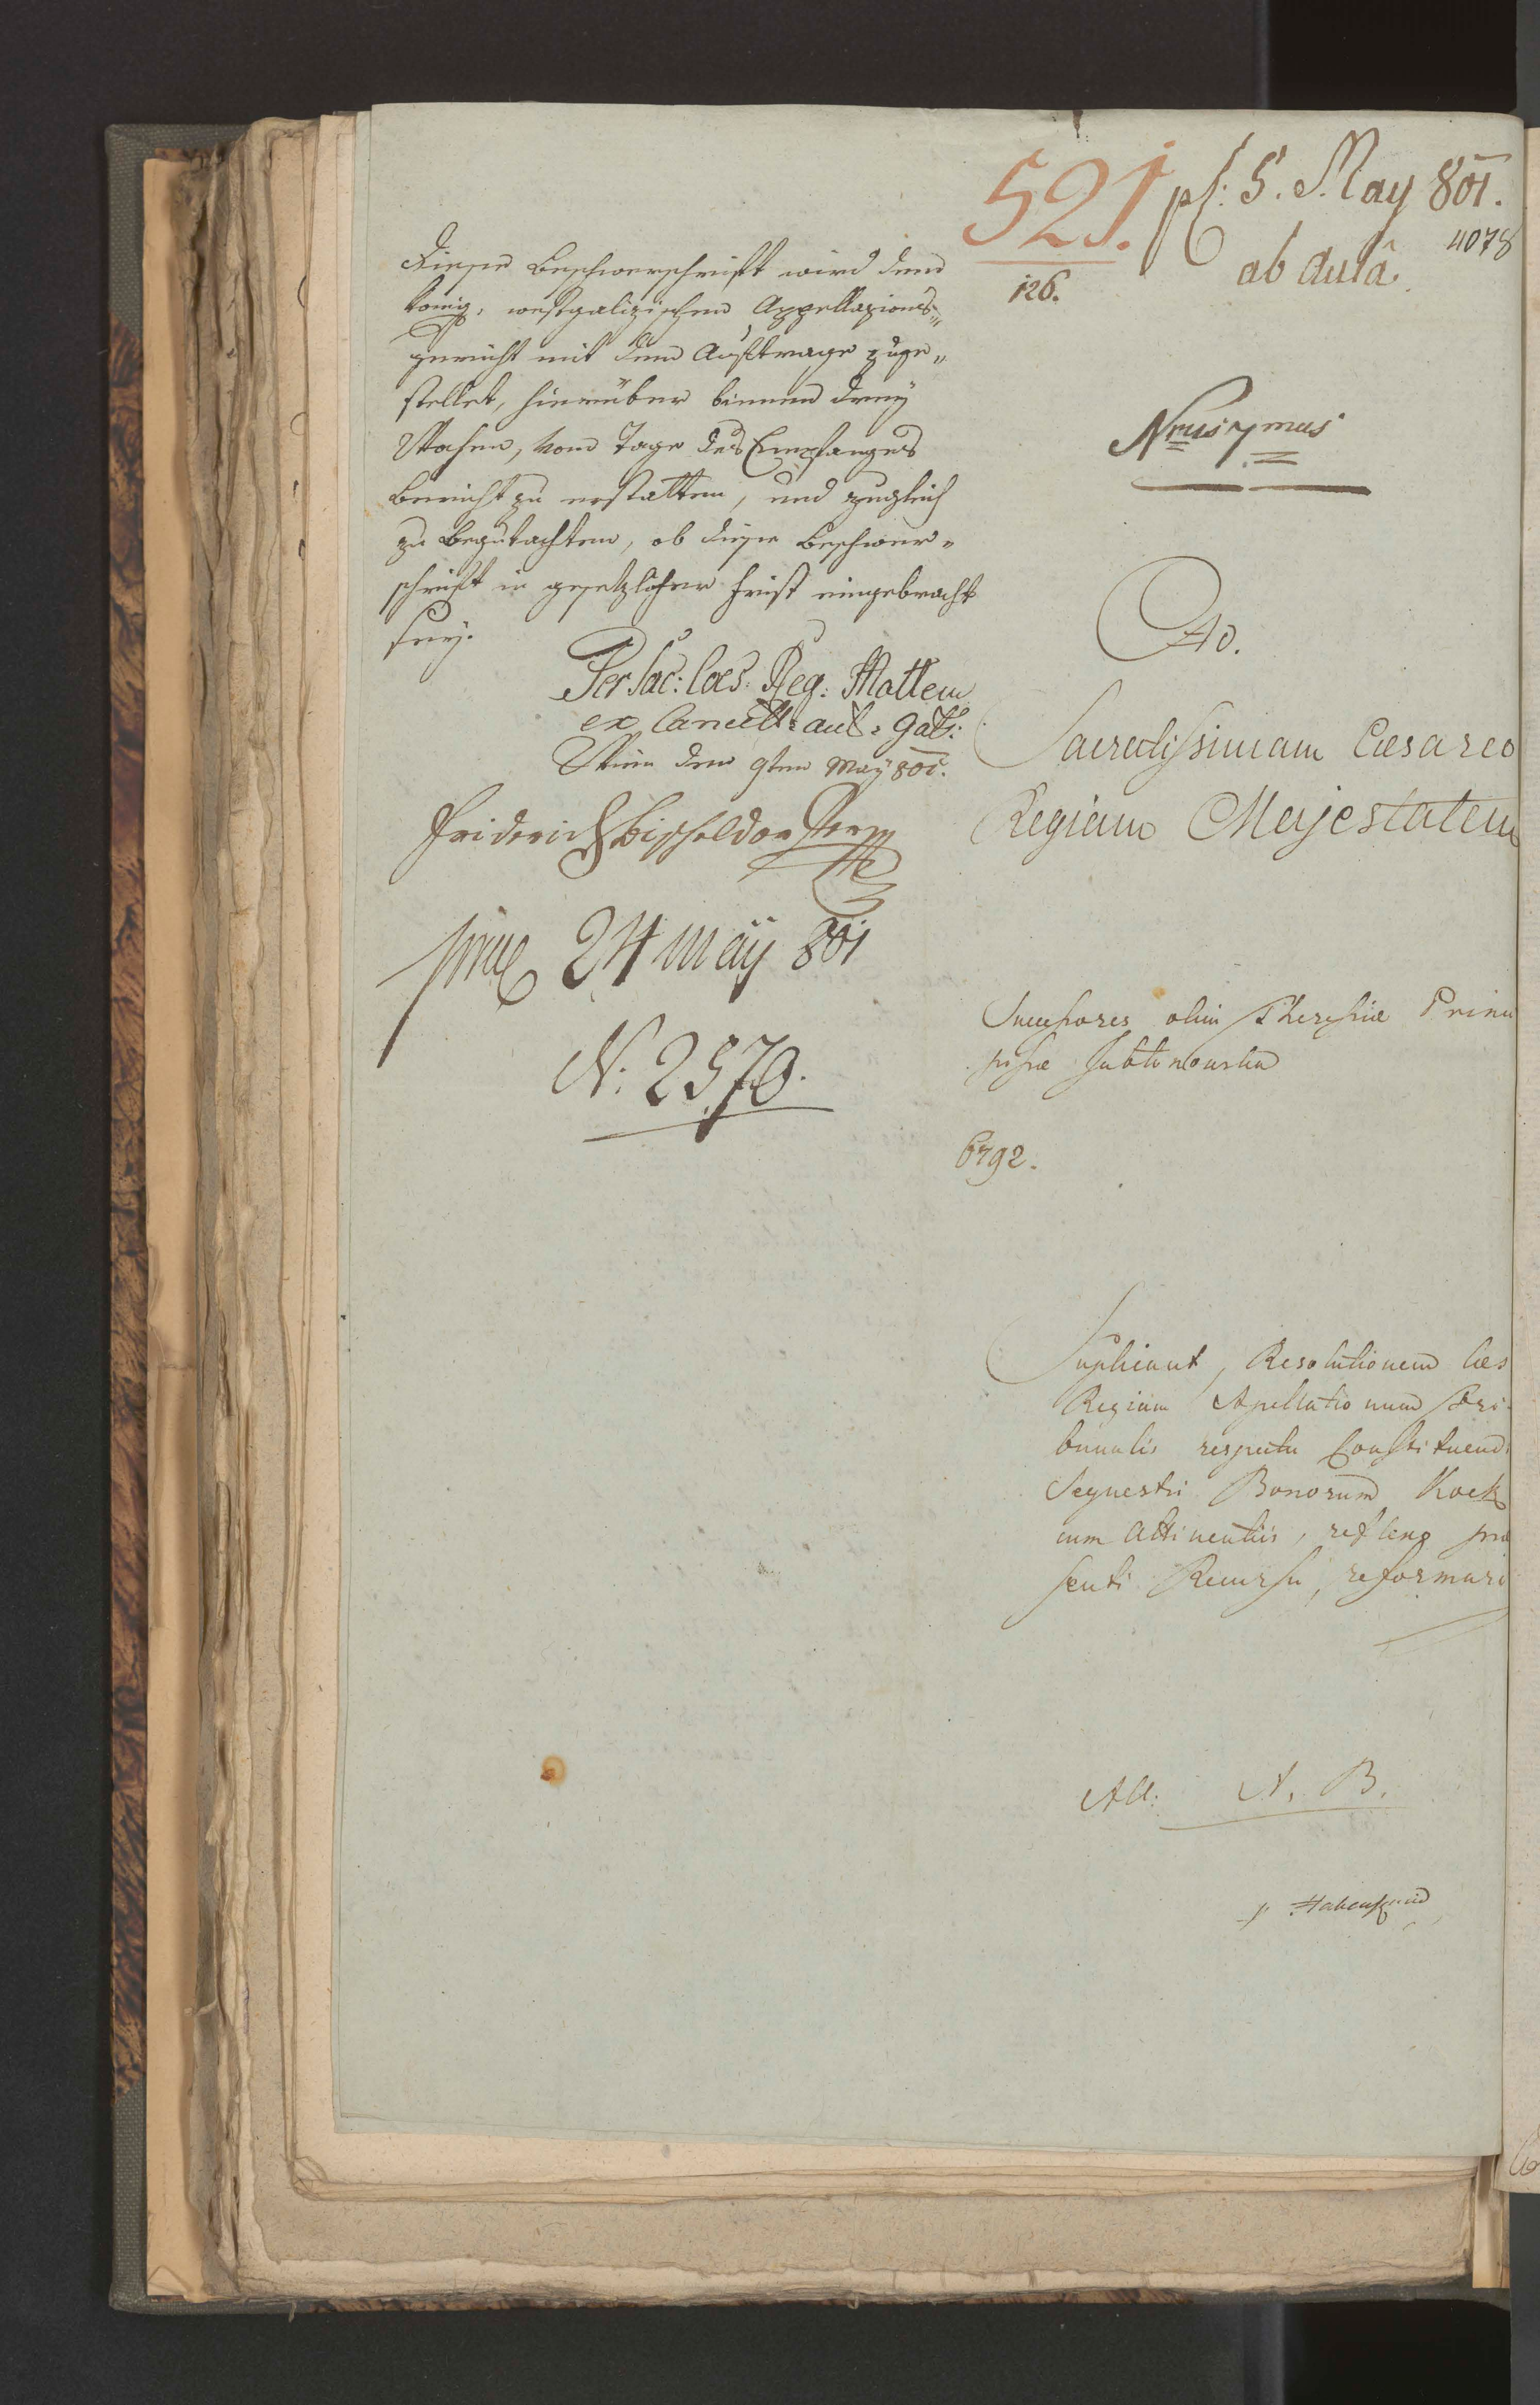 Diese Beschwerschrift wird dem
könig. westgalizischen Appellazions„
gericht mit dem Auftrage zuge„
stellet, hierüber binnen drey
Wochen, vom Tage des Empfanges
Bericht zu erstatten, und zugleich
zu begutachten, ob diese Beschwer„
schrift in gesetzlicher Frist eingebracht
sey.
Per Sac: Caes: Reg: Mattem
ex Cancell: aul: Gali:
Wien den 9ten May 801.
Friderich
24 may 801
N: 2570.
521.
126.
ps: 5. May 801.
4078
ab Aula.
Nrus 7mus
Ad.
Sacratissimam Cæsareo
Regiam Majestatem
Successores olim Theresiæ Prin
cipissæ Jablonouska
6792.
Suplicant, Resolutionem Cæs
Regium Apellationum Tri
bunalis respectu Constituendi
Sequestri Bonorum Kock
cum Attinentiis, reflexo præ
senti Recursu, reformari
All: A. B.